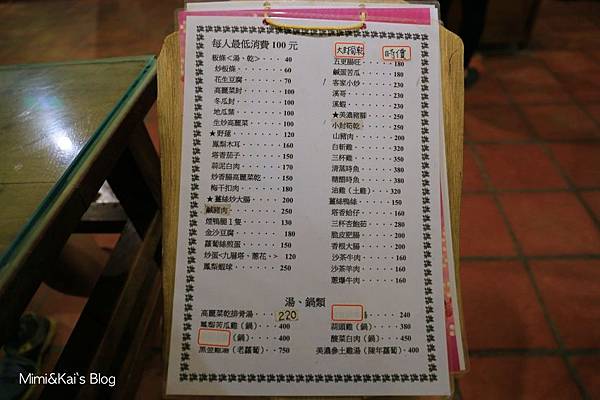 每人最低消費100元
板條<湯、乾>・・・40
炒板條・・・・・・・60
花生豆腐・・・・・・70
高麗菜封・・・・・・100
冬瓜封・・・・・・・100
地瓜葉・・・・・・・100
生炒高麗菜・・・・・100
★野蓮・・・・・・・120
鳳梨木耳・・・・・・160
塔香茄子・・・・・・150
蒜泥白肉・・・・・・170
炒香腸高麗菜乾・・・150
梅干扣肉・・・・・・180
★薑絲炒大腸・・・・200
鹹豬肉・・・・・・・250
煙鴨腿1隻・・・・・130
金沙豆腐・・・・・・180
蘿蔔絲煎蛋・・・・・150
炒蛋<九層塔、蔥花、>120
鳳梨蝦球・・・・・・250
時價
五更腸旺・・・・・・180
鹹蛋苦瓜・・・・・・180
客家小炒・・・・・・230
溪哥・・・・・・・・230
溪蝦・・・・・・・・230
★美濃豬腳・・・・・250
小封筍乾・・・・・・250
山豬肉・・・・・・・200
白斬雞・・・・・・・320
三杯雞・・・・・・・350
清蒸時魚・・・・・・380
糖醋時魚・・・・・・380
油雞（土雞）・・・320
薑絲鴨絲・・・・・・150
塔香蛤仔・・・・・・160
三杯杏鮑菇・・・・・280
脆皮肥腸・・・・・・160
香根大腸・・・・・・180
沙茶牛肉・・・・・・160
沙茶羊肉・・・・・・160
蔥爆牛肉・・・・・・160
湯、鍋類
高麗菜乾排骨湯・・・220
鳳梨苦瓜雞（鍋）・・・400
（鍋）・・・・400
（老蘿蔔）・・・750
240
蒜頭雞（鍋）・・・・380
酸菜白肉（鍋）・・・450
美濃參土雞湯（陳年蘿蔔）・400
Mimi&Kai's Blog